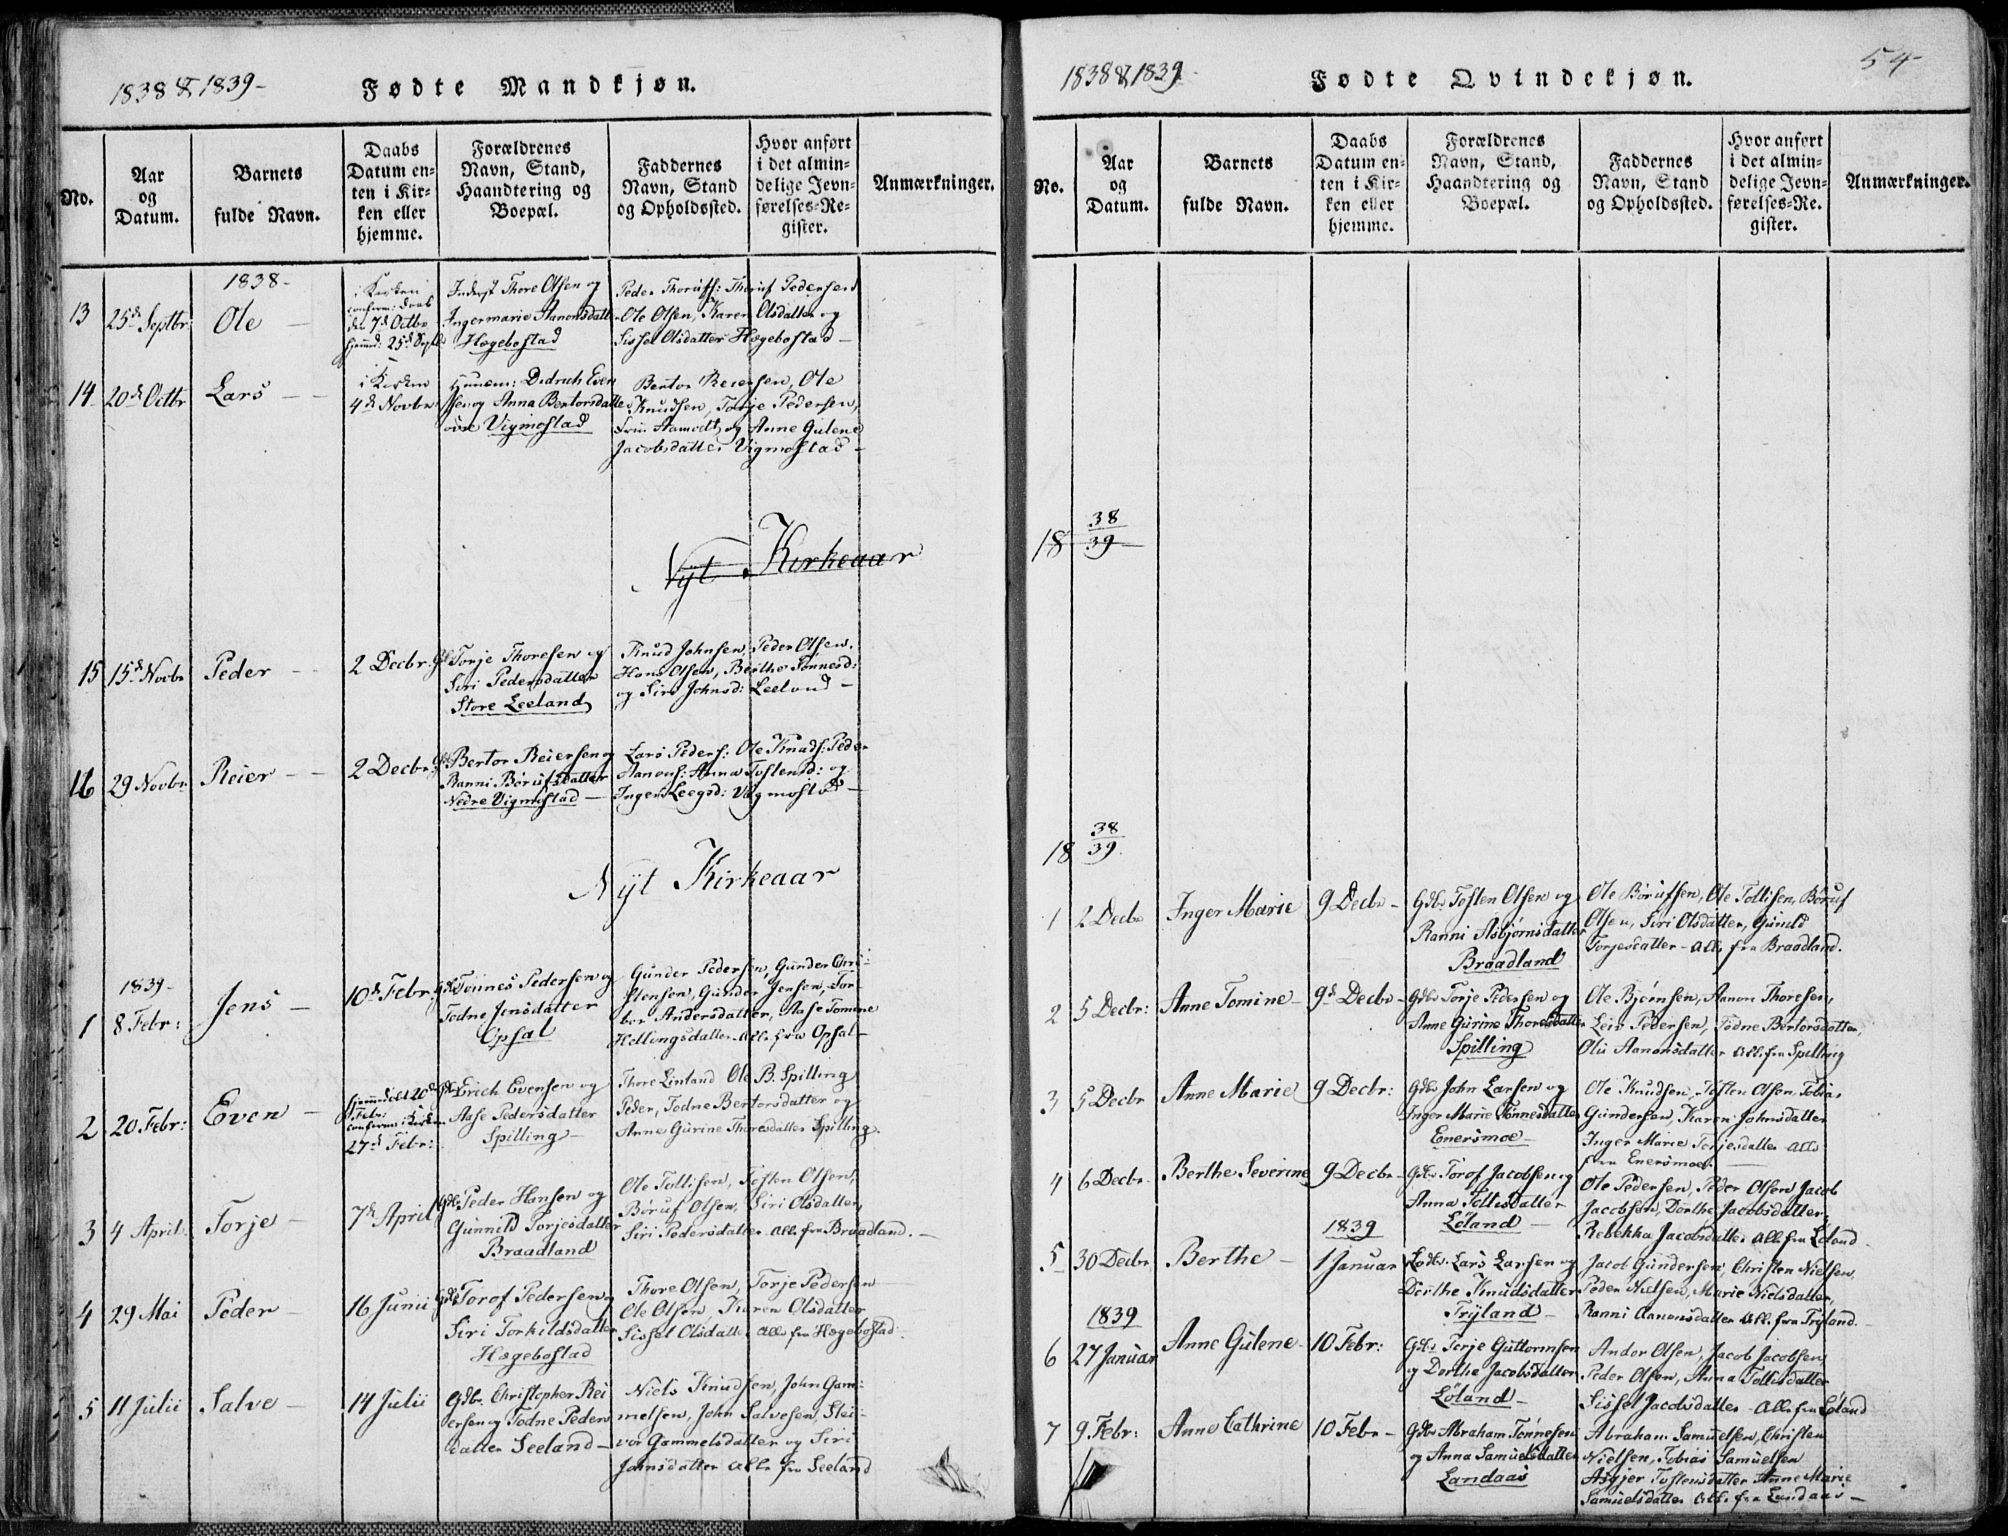 1838 & 1839 -
Fødte Mandkjøn.
No.
Aar
og
Datum.
Barnets
fulde Navn.
Daabs
Datum en-
ten i Kir-
ken eller
hjemme.
Forældrenes
Navn, Stand,
Haandtering og
Boepæl.
Faddernes
Navn, Stand
og Opholdssted.
Hvor anført
i det almin-
delige Jevn-
førelses-Re-
gister.
Anmærkninger.
1838 -
13
25d Septbr:
Ole
i Kirken
den 7d Octbr
hjemmd: 25d Sept
Inderst Thore Olsen og
Ingermarie Aanonsdatter
Hægebostad
Peder Thorufs: Thoruf Pedersen
Ole Olsen, Karen Olsdatter og
Sissel Olsdatter Hægebostad -
14
20d Octbr
Lars
i Kirken
4d Novbr
Huusm: Didrich Even
sen og Anna Bentorsdatter
øvre Vigmostad
Bentor Reiersen, Ole
Knudsen, Torje Pedersen,
Aamodt og Anne Gulene
Jacobsdatter Vigmostad -
Nyt Kirkeaar
15
15d Novbr
Peder
2 Decbr.
Gdbr Torje Thoresen og
Siri Pedersdatter
Store Leeland
Knud Johnsen, Peder Olsen,
Hans Olsen, Berthe Tønnesd:
og Siri Johnsd: Leeland -
16
29 Novbr
Reier
2 Decbr.
Gdbr Bentor Reiersen og
Ranni Børufsdatter
Nedre Vigmostad -
Lars Peders: Ole Knuds: Peder
Aanons: Anna Tostensd: og
Inger Leegsd: Vigmostad -
Nyt Kirkeaar
1839 -
1
8 Febr:
Jens
10d Febr.
Gdbr Tønnes Pedersen og
Todne Jensdatter
Opsal
Gunder Pedersen, Gunder Chri-
stensen, Gunder Jensen, Tor-
bor Andersdatter, Aase Tomine
Hellingsdatter alle fra Opsal -
2
20 Febr:
Even
hjemmedøbt 20d
Febr:
conferm: i Kirken
27d Febr:
Gdbr Erich Evensen og
Aase Pedersdatter
Spilling -
Thore Linland Ole B. Spilling
Peder, Todne Bentorsdatter og
Anne Gurine Thoresdatter Spilling.
3
4 April
Torje
7d April
Gdbr Peder Hansen og
Gunnild Torjesdatter
Braadland
Ole Tollisen, Tosten Olsen,
Børuf Olsen, Siri Olsdatter,
Siri Pedersdatter alle fra Braadland. -
4
29 Mai
Peder
16 Junii
Gdbr Torof Pedersen og
Siri Torkildsdatter
Hægebostad
Thore Olsen, Torje Pedersen
Ole Olsen, Karen Olsdatter
Sissel Olsdatter alle fra Hægebostad.
5
11 Julii
Salve
14 Julii
Gdbr. Christopher Rei
ersen og Todne Peders
datter Seeland -
Niels Knudsen, John Gam-
melsen, John Salvesen, Slei-
vor Gammelsdatter og Siri
Johnsdatter alle fra Seeland
1838 & 1839 -
Fødte Qvindekjøn.
54
No.
Aar
og
Datum.
Barnets
fulde Navn.
Daabs
Datum en-
ten i Kir-
ken eller
hjemme.
Forældrenes
Navn, Stand,
Haandtering og
Boepæl.
Faddernes
Navn, Stand
og Opholdssted.
Hvor anført
i det almin-
delige Jevn-
førelses-Re-
gister.
Anmærkninger.
18 38
39
18 38
39
1
2 Decbr
Inger Marie
9 Decbr -
Gdbr Tosten Olsen og
Ranni Asbjørnsdatter
Braadland
Ole Børufsen, Ole Tollisen, Børuf
Olsen, Siri Olsdatter, Gunild
Torjesdatter - alle fra Braadland.
2
5 Decbr:
Anne Tomine -
9d Decbr -
Gdbr Torje Pedersen og
Anne Gurine Thoresdatter
Spilling
Ole Bjørnsen, Aanon Thoresen,
Leiv Pedersen, Todne Bentorsdatter,
Oliv Aanonsdatter alle fra Spilling
3
5 Decbr
Anne Marie
9 Decbr:
Gdbr John Larsen og
Inger Marie Tønnesdatter
Enersmoe -
Ole Knudsen, Tosten Olsen Tobias
Gundersen, Karen Johnsdatter
Inger Marie Torjesdatter alle
fra Enersmoe.
4
6 Decbr.
Berthe Severine
9 Decbr -
Gdbr Torof Jacobsen og
Anna Tollisdatter
Løland -
Ole Pedersen, Peder Olsen Jacob
Jacobsen, Dorthe Jacobsdatter
Rebekka Jacobsdatter alle fra Løland
1839
5
30 Decbr
Berthe -
1 Januar
Lars Larsen og
Dorthe Knudsdatter
Tryland -
Jacob Gundersen, Christen Nielsen,
Peder Nielsen, Marie Nielsdatter,
Ranni Aanonsdatter alle fra Tryland. -
1839
6
27 Januar
Anne Gulene -
10 Febr:
Gdbr Terje Guttormsen
og Dorthe Jacobsdatter
Løland -
Andor Olsen, Jacob Jacobsen
Peder Olsen, Anna Tollisdatter
Sissel Jacobsdatter - alle fra Løland
7
9 Febr:
Anne Cathrine
10 Febr -
Gdbr Abraham Tønnesen
og Anna Samuelsdatter
Landaas
Abraham Samuelsen, Christen
Nielsen, Tobias Samuelsen
Asgjer Tostensdatter Anne Marie
Samuelsdatter alle fra Landaas -